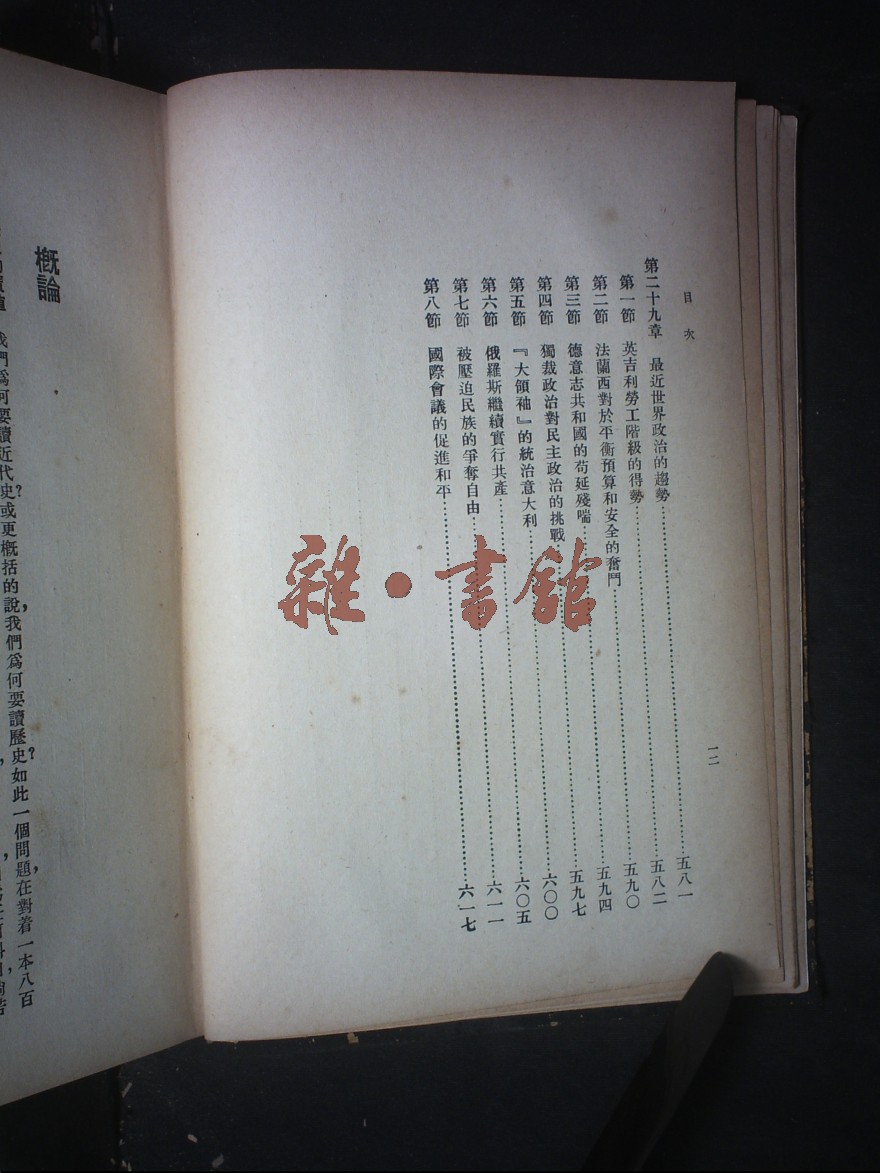 目次
一二
第二十九章 最近世界政治的趨勢……五八一
第一節 英吉利勞工階級的得勢……五八二
第二節 法蘭西對於平衡預算和安全的奮鬥……五九〇
第三節 德意志共和國的苟延殘喘……五九四
第四節 獨裁政治對民主政治的挑戰……五九七
第五節 『大領袖』的統治意大利……六〇〇
第六節 俄羅斯繼續實行共產……六〇五
第七節 被壓迫民族的爭奪自由……六一一
第八節 國際會議的促進和平……六一七
雜·書館
概論
我們爲何要讀近代史?或更概括的說,我們爲何要讀歷史?如此一個問題,在對着一本八百